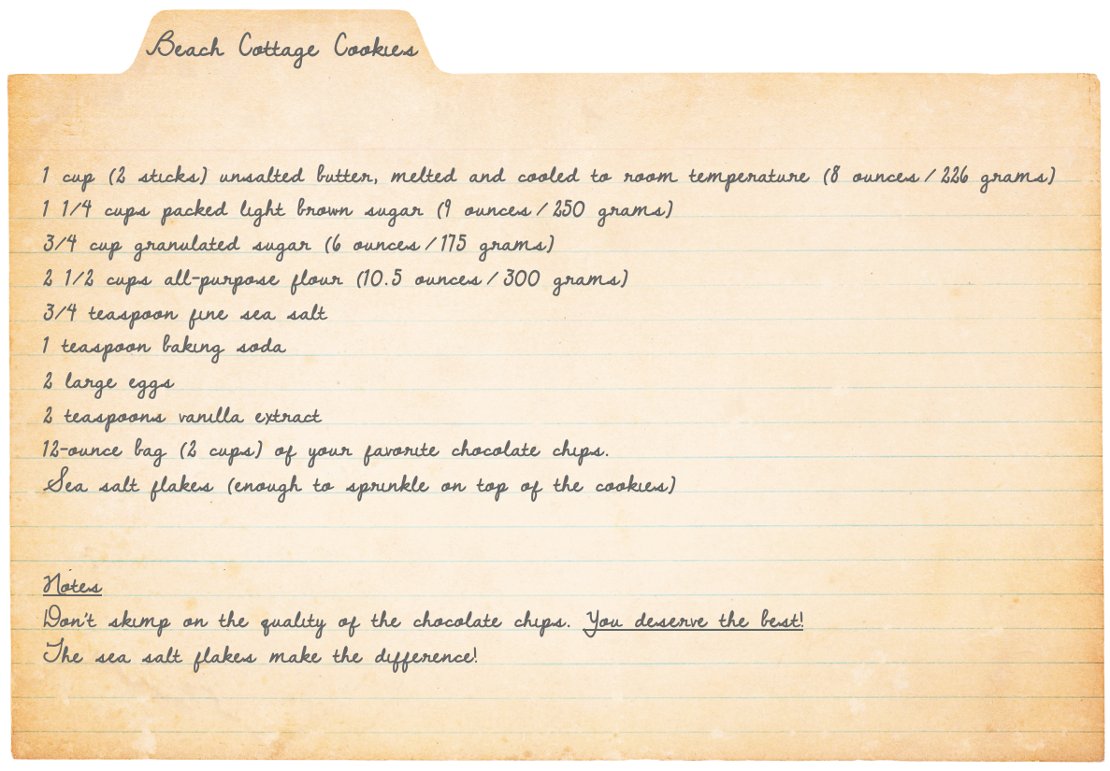 Beach Cottage Cookies
1 cup (2 sticks) unsalted butter, melted and cooled to room temperature (8 ounces / 226 grams)
1 1/4 cups packed light brown sugar (9 ounces / 250 grams)
3/4 cup granulated sugar (6 ounces / 175 grams)
2 1/2 cups all-purpose flour (10.5 ounces / 300 grams)
3/4 teaspoon fine sea salt
1 teaspoon baking soda
2 large eggs
2 teaspoons vanilla extract
12-ounce bag (2 cups) of your favorite chocolate chips.
Sea salt flakes (enough to sprinkle on top of the cookies)
Notes
Don't skimp on the quality of the chocolate chips. You deserve the best!
The sea salt flakes make the difference!